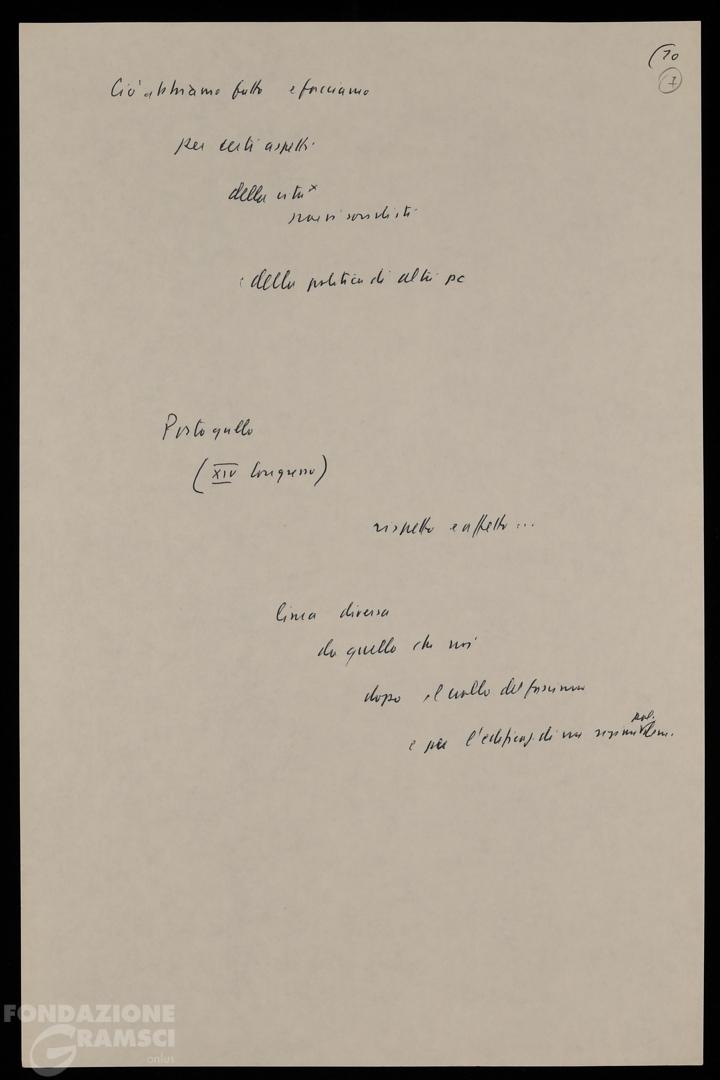 (10
7
Ciò abbiamo fatto e facciamo
per certi aspetti
della vita x
paesi socialisti
e della politica di altri pc
Portogallo
(XIV Congresso)
rispetto e affetto...
linea diversa
da quello che noi
dopo il crollo del fascismo
e per l'edificaz. di un regime pol. dem.
FONDAZIONE
GRAMSCI
onlus